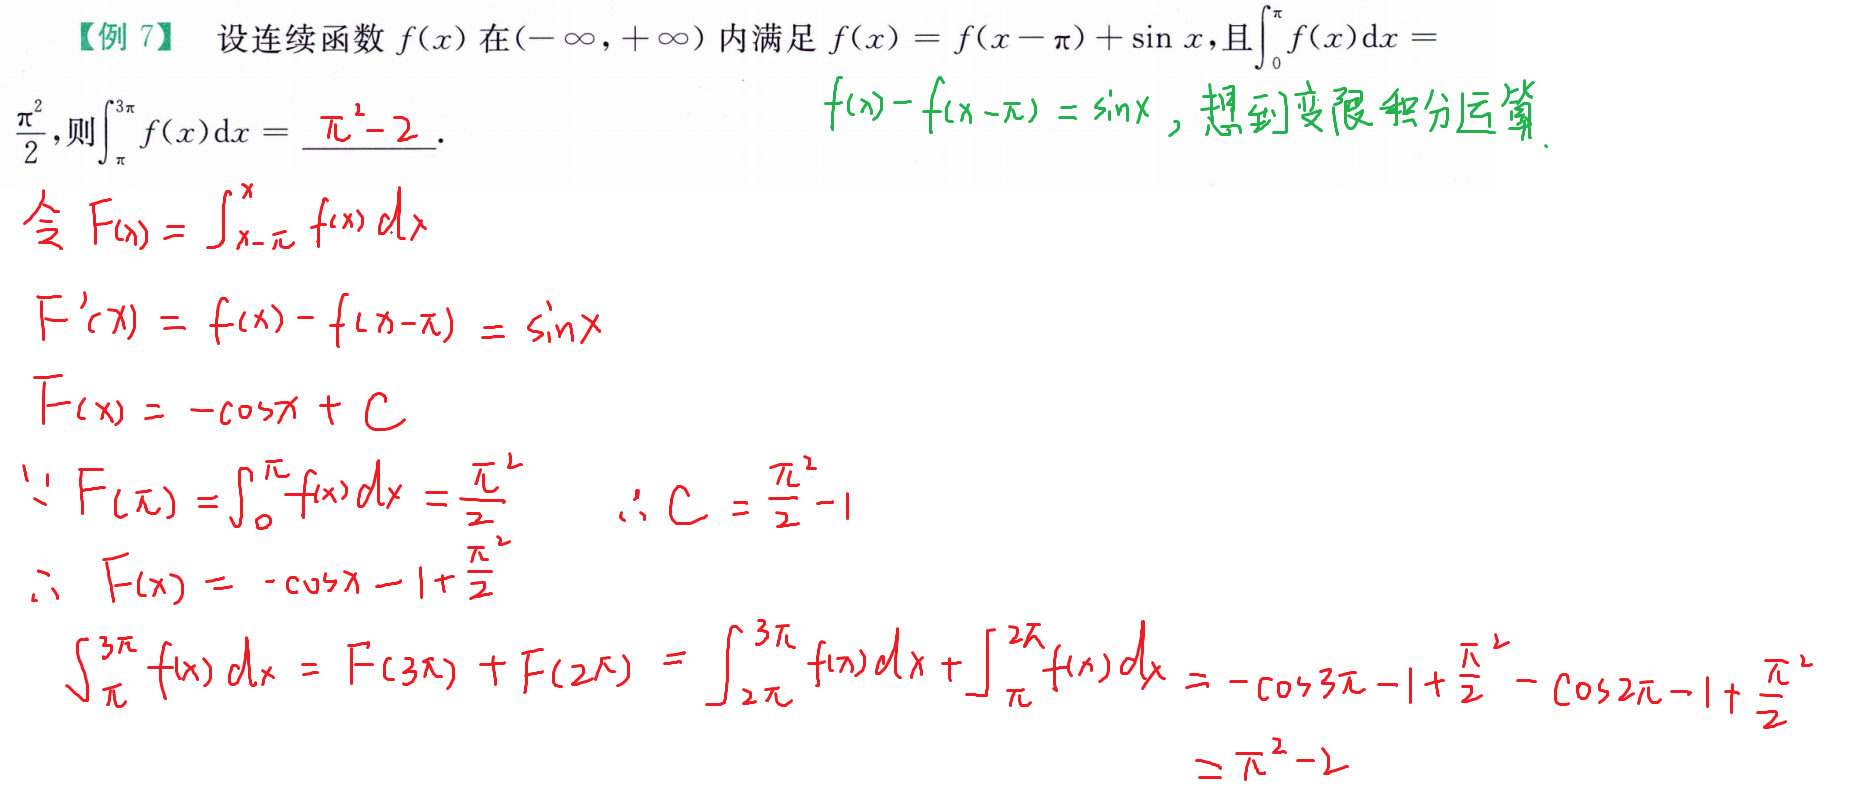 【例 7】 设连续函数 f(x) 在(-∞,+∞) 内满足 f(x) = f(x-π)+sin x,且∫₀^π f(x)dx =
π²/2,则∫_π^{3π} f(x)dx = π²-2.
f(x)-f(x-π) = sinx，想到变限积分运算.
令 F(x) = ∫_{x-π}^x f(x) dx
F'(x) = f(x) - f(x-π) = sinx
F(x) = -cosx + C
∵ F(π) = ∫₀^π f(x) dx = π²/2 ∴ C = π²/2 -1
∴ F(x) = -cosx -1+ π²/2
∫_π^{3π} f(x) dx = F(3π) + F(2π) = ∫_{2π}^{3π} f(x) dx + ∫_π^{2π} f(x) dx = -cos3π -1+ π²/2 - cos2π -1+ π²/2
= π²-2